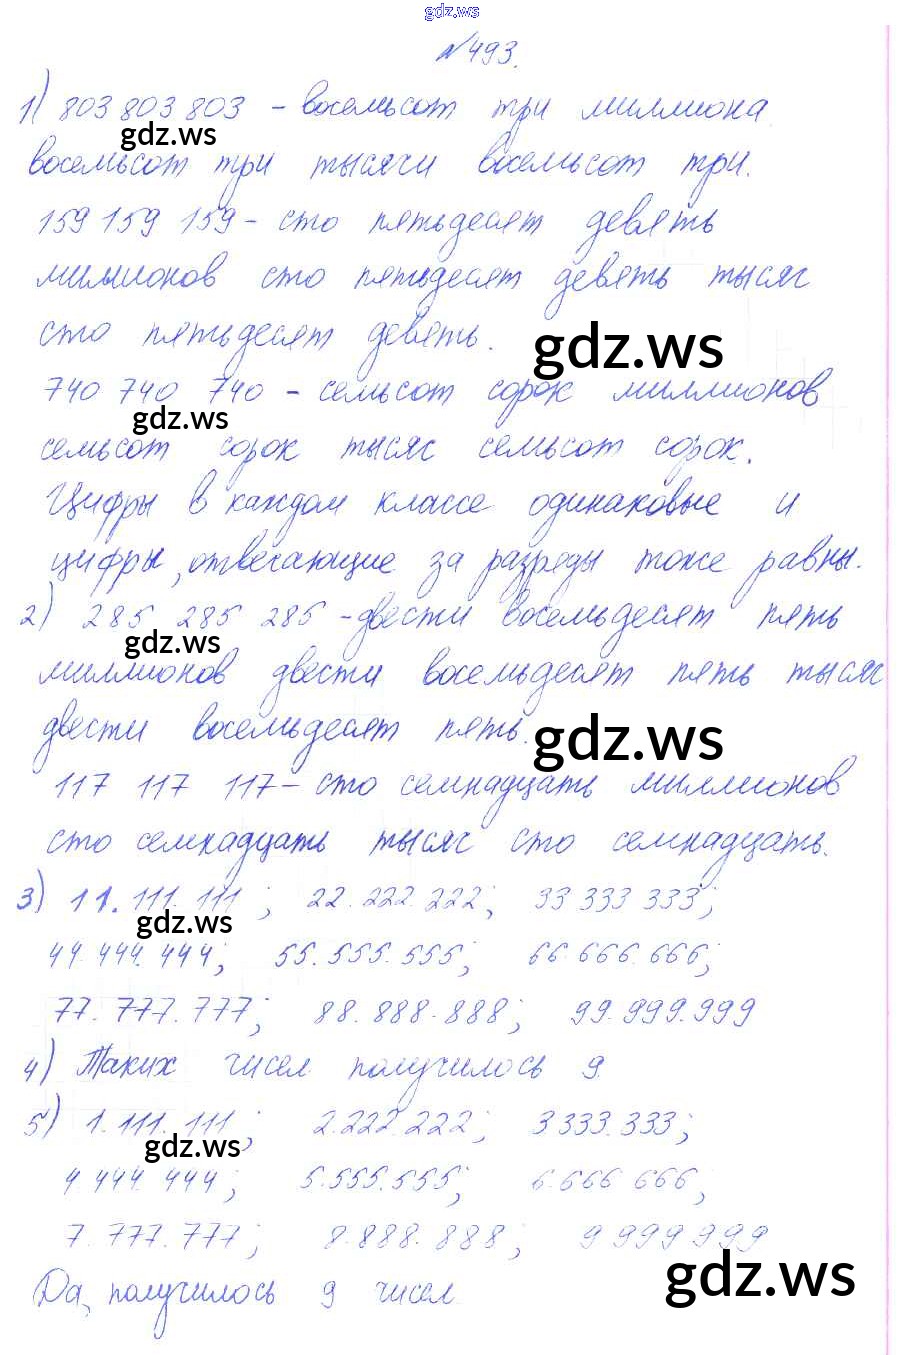 gdz.ws
№493.
1) 803 803 803 - восемьсот три миллиона
gdz.ws
восемьсот три тысячи восемьсот три.
159 159 159 - сто пятьдесят девять
миллионов сто пятьдесят девять тысяч
сто пятьдесят девять.
gdz.ws
740 740 740 - семьсот сорок миллионов
gdz.ws
семьсот сорок тысяч семьсот сорок.
Цифры в каждом классе одинаковые и
цифры, отвечающие за разряды тоже равны.
2) 285 285 285 - двести восемьдесят пять
gdz.ws
миллионов двести восемьдесят пять тысяч
двести восемьдесят пять.
gdz.ws
117 117 117 - сто семнадцать миллионов
сто семнадцать тысяч сто семнадцать.
3) 11.111.111; 22.222.222; 33 333 333;
gdz.ws
44.444.444; 55.555.555; 66.666.666;
77.777.777; 88.888.888; 99.999.999
4) Таких чисел получилось 9
5) 1.111.111; 2.222.222; 3 333.333;
gdz.ws
4.444.444; 5.555.555; 6.666 666;
7.777.777; 8.888.888; 9 999 999
gdz.ws
Да, получилось 9 чисел